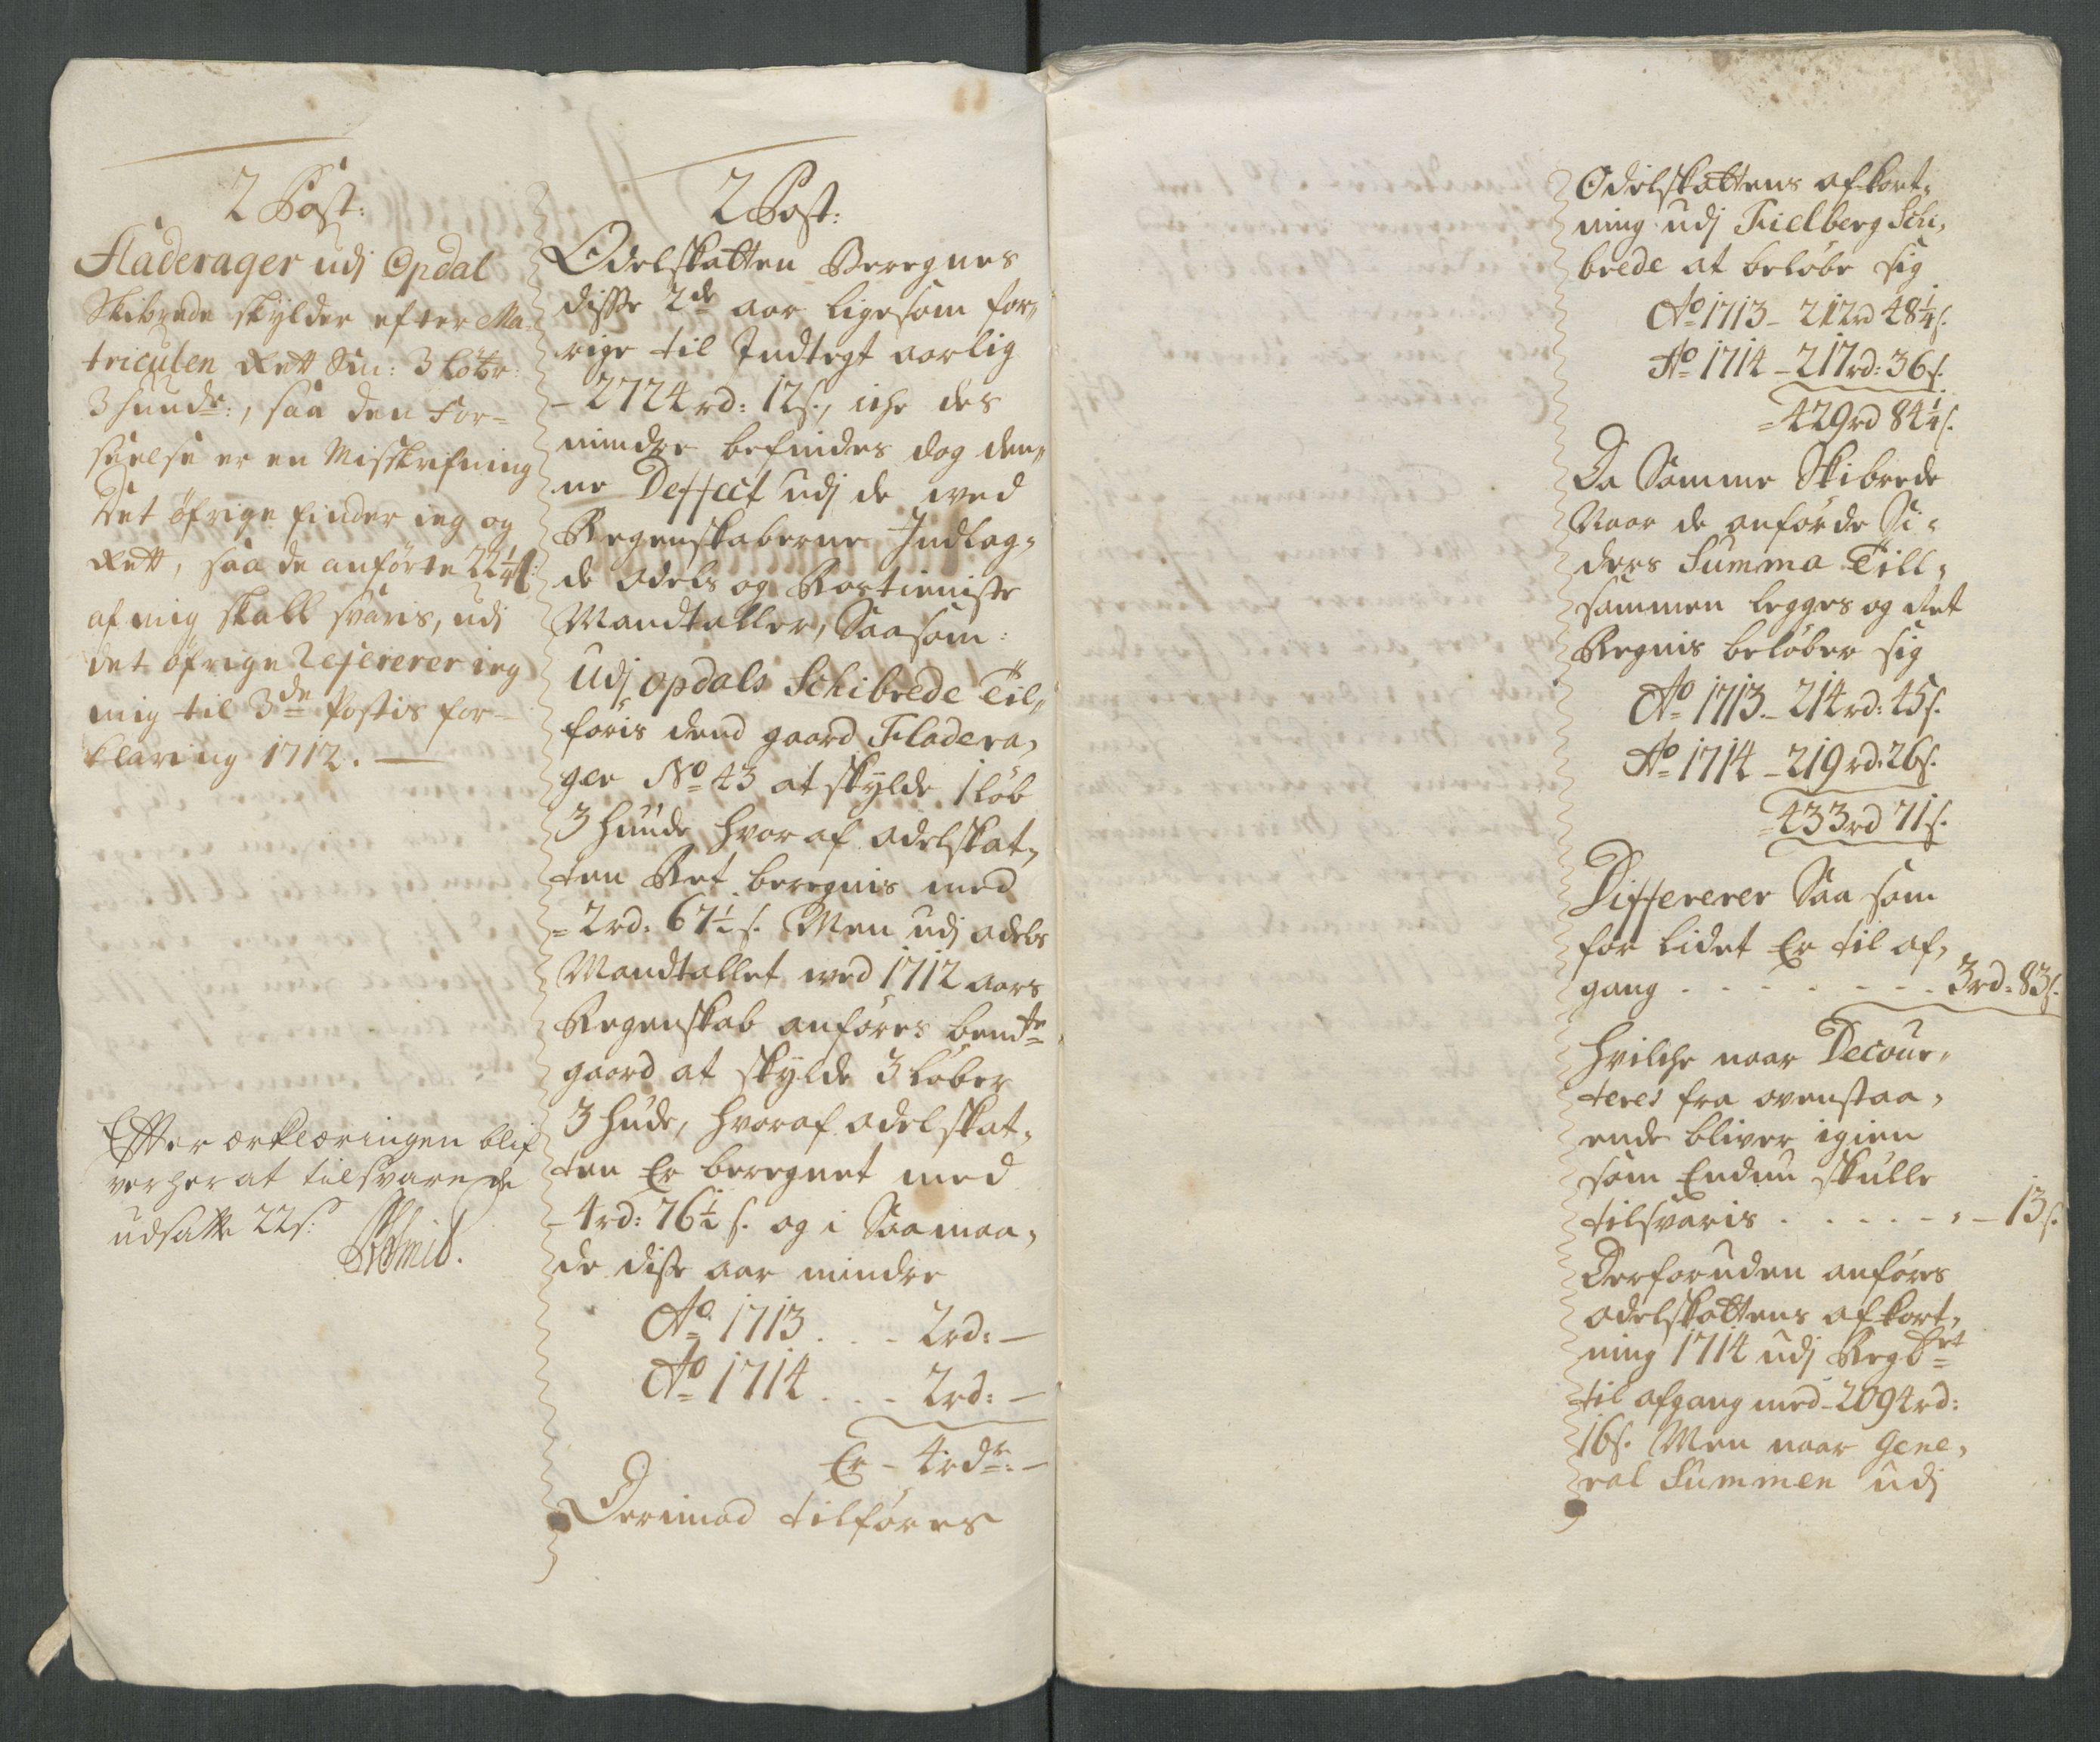 2 Post:
Fladerager udj Opdal
Skibrede skylder efter Ma-
triculen Rett Sin: 3 Løber:
3 hunde:, saa den For-
seelse er en Misskrifning
Det öfrige finder ieg og
Rett, saa de anförte 22 1/4 s:
af mig skall svaris, udi
det öfrige Refererer ieg
mig til 3de Postis for-
klaring 1712.
Effter erklæringen blif
ver her at tilsvare de
udsatte 22 s:
2 Post:
Odelskatten Beregnes
disse 2de aar ligesom for„
rige til Indtegt aarlig
- 2724 rd: 12 s., iche des
mindre befindes dog den„
ne Deffect udj de wed
Regenskaberne Indlag„
de odels og Rostieniste
Mandtaller, Saasom:
Udj opdals Schibrede Til„
föris dend gaard Fladera„
ger No 43 at skÿlde 1 löb
3 hunde hvoraf odelskat„
ten Ret beregnis med
= 2 rd: 67 1/2 s. Men udj odels
Mandtallet wed 1712 aars
Regenskab anföres bemte
gaard at skÿlde 3 löber
3 hude, hvoraf odelskat„
ten Er beregnet med
- 4 rd: 76 1/2 s. og i Saamaa„
de disse aar mindre
Ao 1713 . . - 2 rd: -
Ao 1714 . . - 2 rd: -
Er - 4 rdr: -
Derimod tilföres
Odelskattens afkort„
ning udj Fielberg Schi„
brede at belöbe sig
Ao 1713 - 212 rd 48 1/4 s.
Ao 1714 - 217 rd: 36 s.
= 429 rd 84 1/4 s.
Da Samme Skibrede
Naar de anförde Si„
ders Summa Till„
sammen legges og ret
Regnis belöber sig
Ao 1713. - 214 rd: 45 s.
Ao 1714 - 219 rd: 26 s.
= 433 rd 71 s.
Differerer Saa som
for lidet Er til af„
gang - - - - - - 3 rd: 83 s.
hvilche naar Decour„
teres fra ovenstaa„
ende bliver igien
som Endnu skulle
tilsvaris . . . . . - 13 s.
Derforuden anföres
odelskattens afkort„
ning 1714 udj Regbet
til afgang med - 2094 rd:
16 s. Men naar Gene„
ral Summen udj